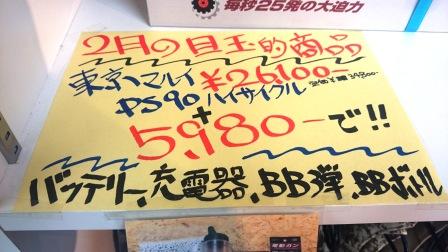 毎秒25発の大迫力
2月の目玉的商品
東京マルイ ¥26,100-
定価¥39,800-
PS90 ハイサイクル
+
5,980-で!!
バッテリー、充電器、BB弾、BBボトル
電動ガン